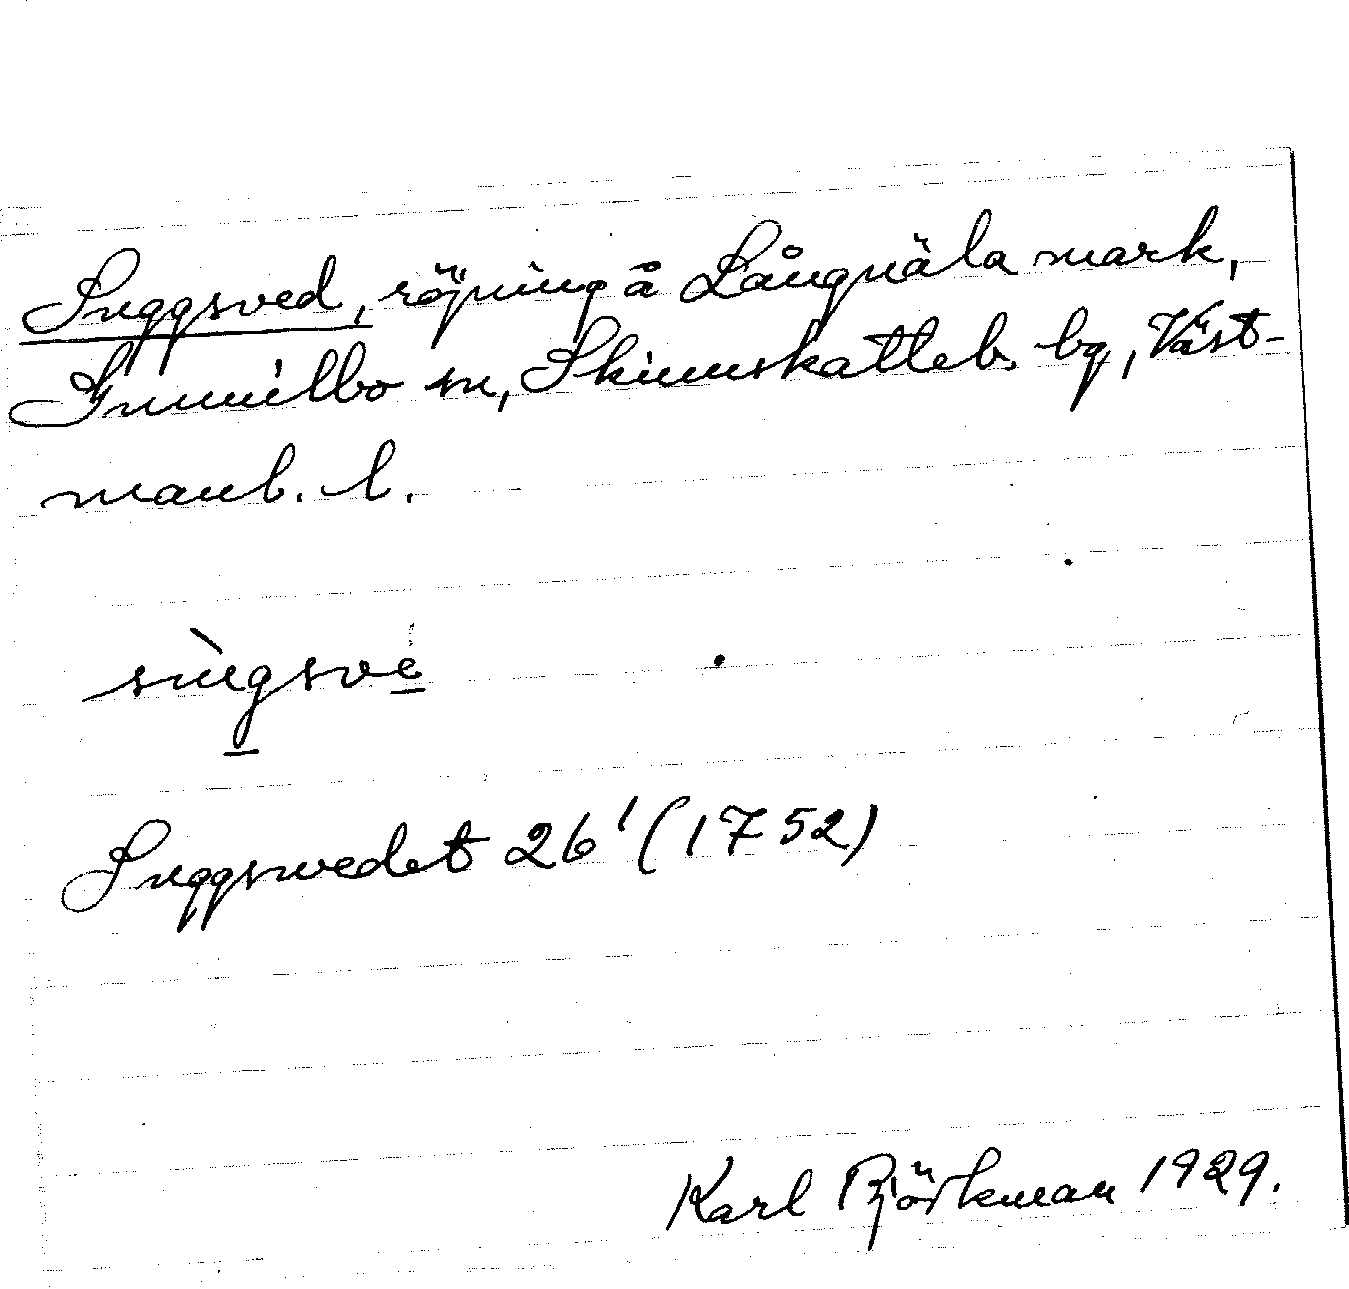 Suggsved, röjning å Långnäla mark,
Gunnilbo sn, Skinnskatteb. bg, Väst-
manl. l.
sùgsve
Suggswedet 26' (1752)
Karl Björkman 1929.